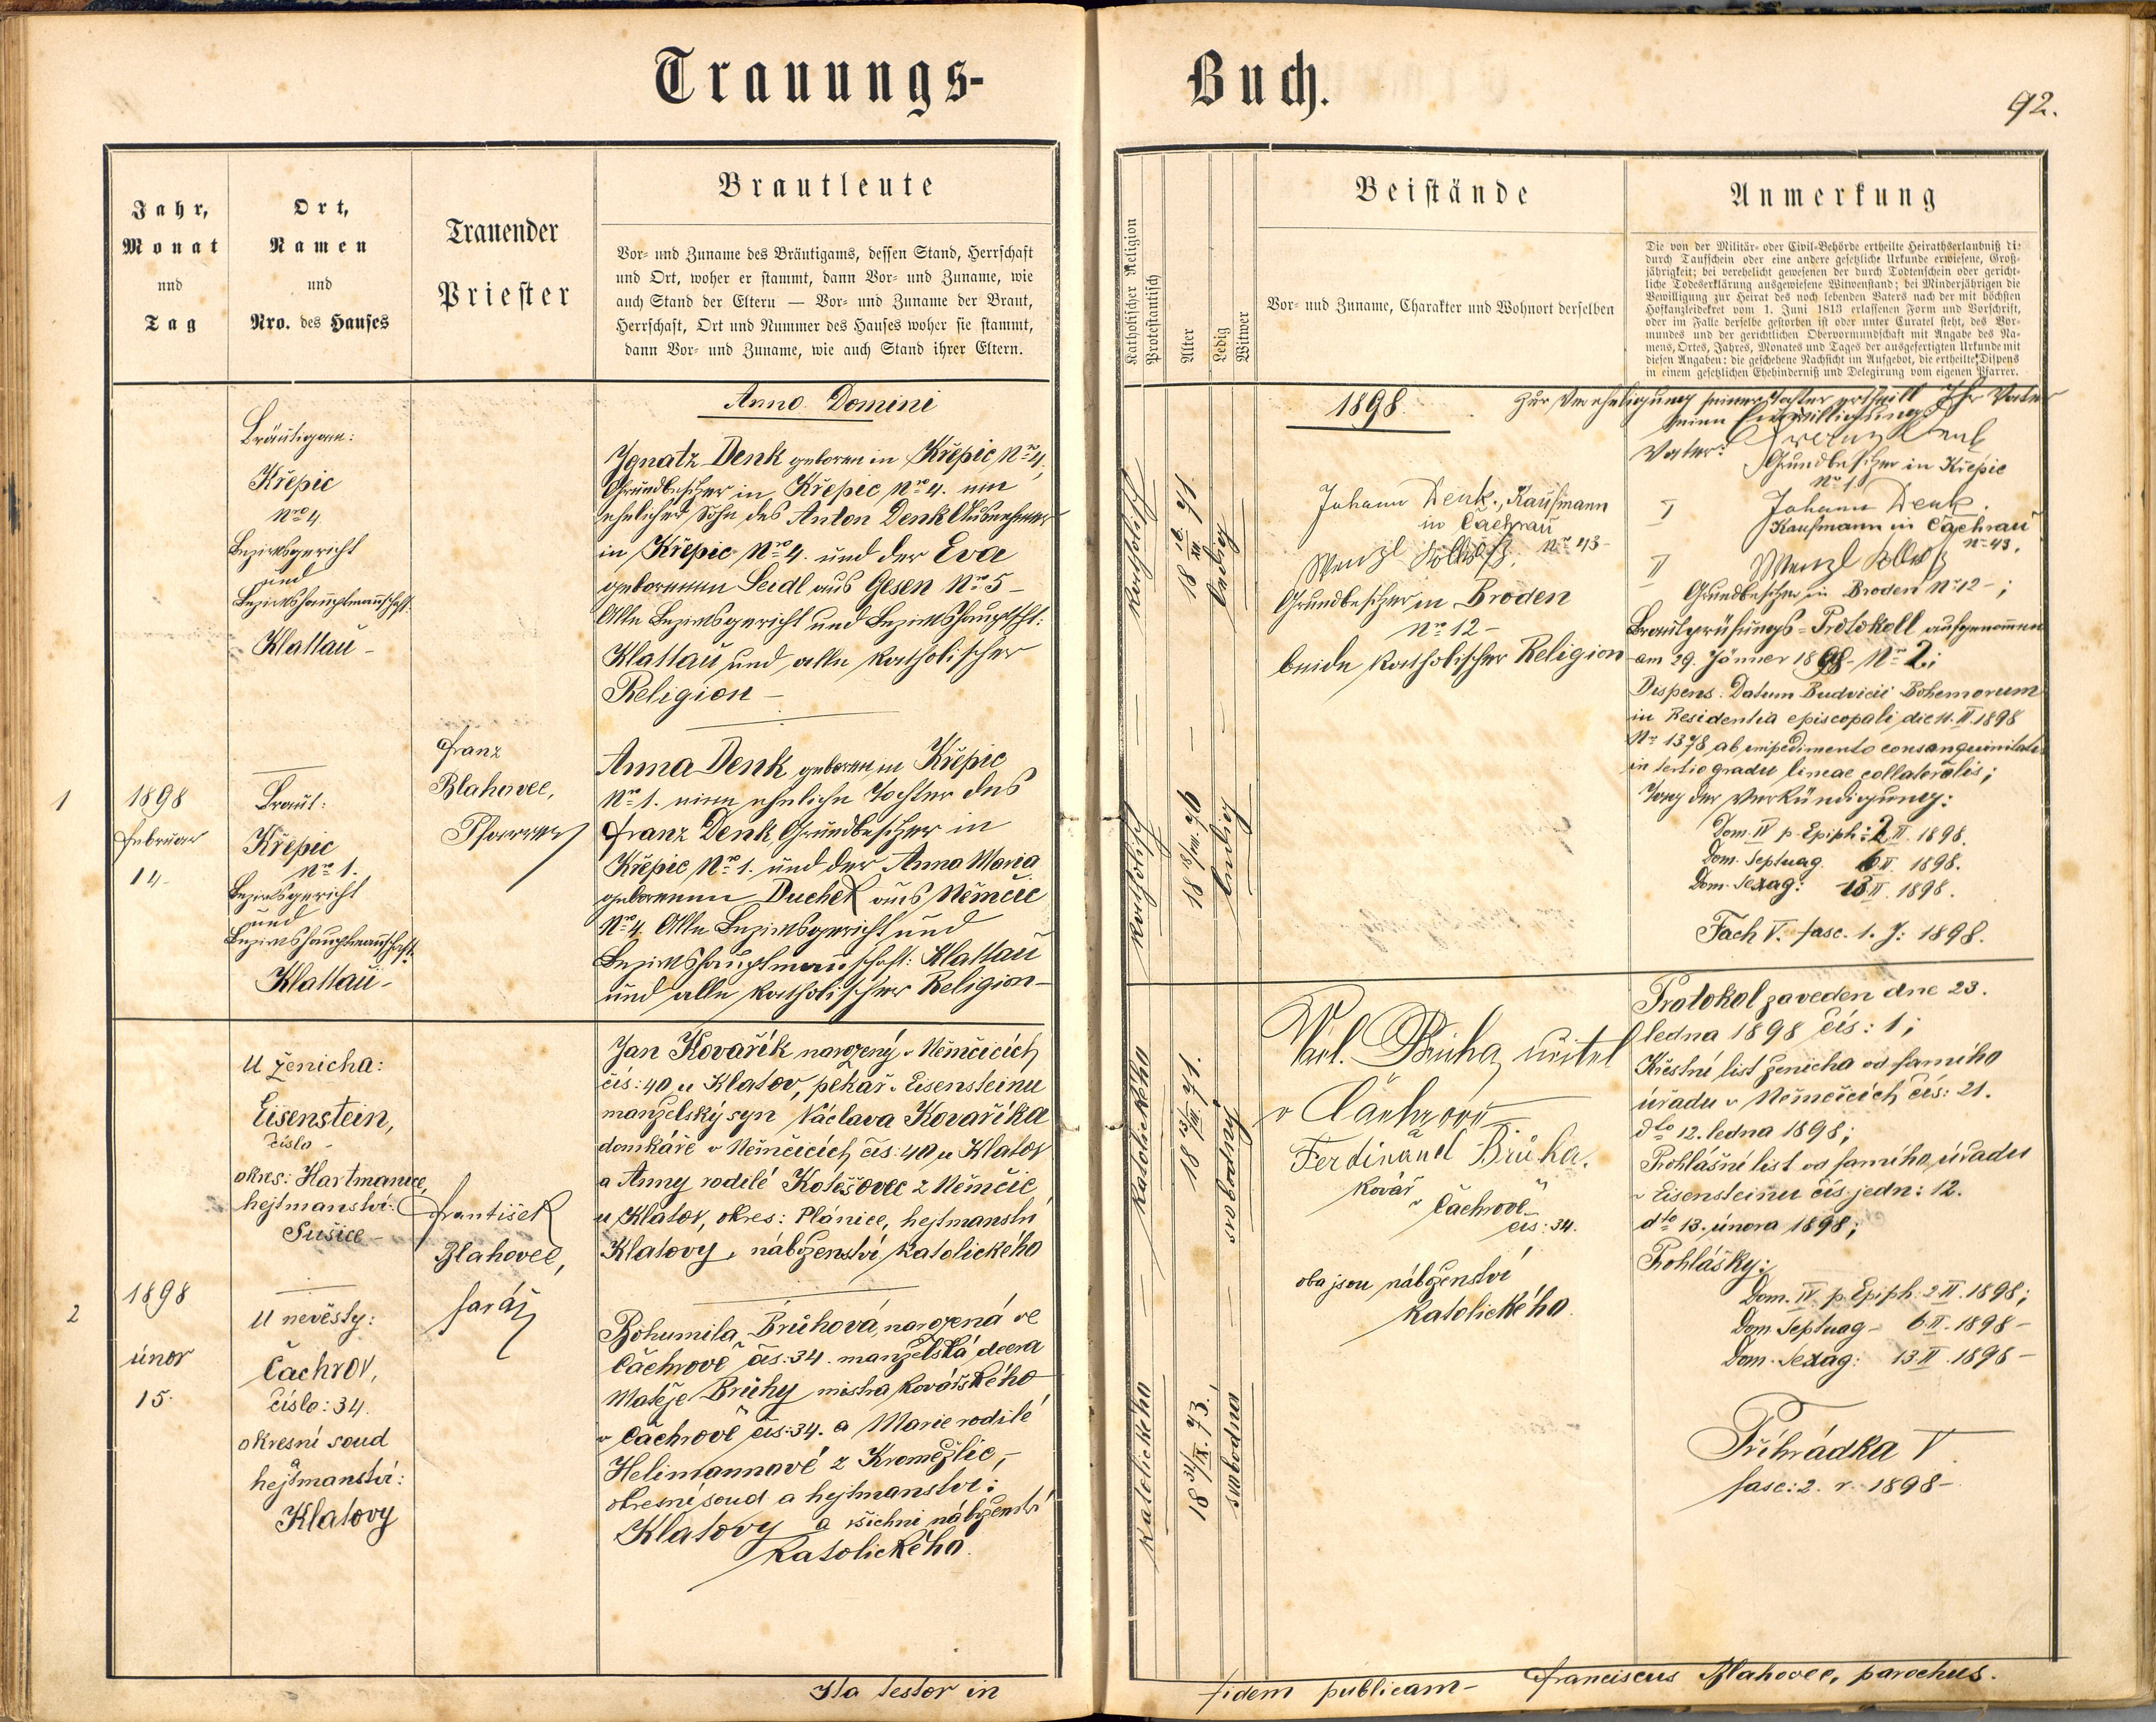 Trauungs-Buch.
92.
Jahr,
Monat
und
Tag
Ort,
Namen
und
Nro. des Hauses
Trauender
Priester
Brautleute
Vor- und Zuname des Bräutigams, dessen Stand, Herrschaft
und Ort, woher er stammt, dann Vor- und Zuname, wie
auch Stand der Eltern — Vor- und Zuname der Braut,
Herrschaft, Ort und Nummer des Hauses woher sie stammt,
dann Vor- und Zuname, wie auch Stand ihrer Eltern.
Katholischer Religion
Protestantisch
Alter
Ledig
Witwer
Beistände
Vor- und Zuname, Charakter und Wohnort derselben
Anmerkung
Die von der Militär- oder Civil-Behörde ertheilte Heirathserlaubniß di
durch Taufschein oder eine andere gesetzliche Urkunde erwiesene, Groß-
jährigkeit; bei verehelicht gewesenen der durch Todtenschein oder gericht-
liche Todeserklärung ausgewiesene Witwenstand; bei Minderjährigen die
Bewilligung zur Heirat des noch lebenden Vaters nach der mit höchsten
Hofkanzleidekret vom 1. Juni 1813 erlassenen Form und Vorschrift,
oder im Falle derselbe gestorben ist oder unter Curatel steht, des Vor-
mundes und der gerichtlichen Obervormundschaft mit Angabe des Na-
mens, Ortes, Jahres, Monates und Tages der ausgefertigten Urkunde mit
diesen Angaben; die geschehene Nachsicht im Aufgebot, die ertheilte Dispens
in einem gesetzlichen Ehehinderniß und Delegirung vom eigenen Pfarrer.
Anno Domini
1898.
1
1898
Februar
14
Bräutigam:
Křepic
Nro 4
Bezirksgericht
und
Bezirkshauptmannschaft:
Klattau –
Braut:
Křepic
Nro 1.
Bezirksgericht
und
Bezirkshauptmannschaft:
Klattau –
Franz
Blahovec,
Pfarrer
Ignatz Denk geboren in Křepic Nro 4,
Grundbesitzer in Křepec Nro 4. ein
ehelicher Sohn des Anton Denk Ausnehmer
in Křepic Nro 4. und der Eva
geborenen Seidl aus Gesen Nro 5 –
Alle Bezirksgericht und Bezirkshauptscht:
Klattau und alle katholischer
Religion –
Anna Denk geboren in Křepic
Nro 1. eine eheliche Tochter des
Franz Denk Grundbesitzer in
Křepic Nro 1. und der Anna Maria
geborenen Duchek aus Němčic
Nro 4. Alle Bezirksgericht und
Bezirkshauptmannschaft: Klattau
und alle katholischer Religion –
katholisch
ledig
katholisch
ledig
Johann Denk, Kaufmann
in Čachrau
Nro 43 –
Wenzl
Grundbesitzer in Broden
Nro 12 –
beide katholischer Religion
Zur Verehelichung seiner Tochter ertheilt Ihr Vater
seine Einwilligung:
Vater: Franz Denk
Grundbesitzer in Křepic
Nro 1.
I Johann Denk.
Kaufmann in Čachrau
Nro 43.
II Wenzl
Grundbesitzer in Broden Nro 12 – ;
Brautprüfungs-Protokoll aufgenommen
am 29. Jänner 1898 – Nro 2;
Dispens: Datum Budvicii Bohemorum
in Residentia episcopali die 11. II. 1898
Nro 1378 ab impedimento consanguinitatis
in tertio gradu lineae collateralis;
Tag der Verkündigung:
Dom. IV p. Epiph: 2. II. 1898.
Dom. Septuag. 6 II. 1898.
Dom. Sexag: 13 II. 1898.
Fach V. fasc. 1. J: 1898.
2
1898
únor
15.
U ženicha:
Eisenstein,
číslo –
okres: Hartmanice,
hejtmanství:
Sušice –
U nevěsty:
Čachrov,
číslo: 34.
okresní soud
a
hejtmanství:
Klatovy
František
Blahovec,
farář
Jan Kovařík narozený v Němčicích
čís: 40 u Klatov, pekař v Eisensteinu
manželský syn Václava Kovaříka
domkáře v Němčicích čís: 40 u Klatov
a Anny rodilé Kotěšovec z Němčic
u Klatov, okres: Plánice, hejtmanství
Klatovy, náboženství katolického
Bohumila Brůhová, narozená ve
Čachrově čís: 34. manželská dcera
Matěje Brůhy mistra kovářského
v Čachrově čís: 34. a Marie rodilé
Helimannavé z Kroměžlic, –
okresní soud a hejtmanství:
Klatovy a všichni náboženství
katolického.
katolického
18 13/VII. 71.
svobodný
katolického
18 31/IX. 73.
svobodna
Václ. Brůha, učitel
v Čachrově
Ferdinand Brůha.
kovář
v Čachrově
čís: 34.
oba jsou náboženství
katolického.
Protokol zaveden dne 23.
ledna 1898 čís: 1;
Křestní list ženicha od farního
úřadu v Němčicích čís: 21.
dto 12. ledna 1898;
Prohlášní list od farního úřadu
v Eisensteinu čís. jedn: 12.
dto 13. února 1898;
Prohlášky:
Dom. IV. p. Epiph. 2 II. 1898;
Dom. Septuag – 6 II. 1898 –
Dom. Sexag: 13 II. 1898 –
Přihrádka V
fasc: 2. r. 1898 –
Ita testor in fidem publicam – Franciscus Blahovec, parochus.